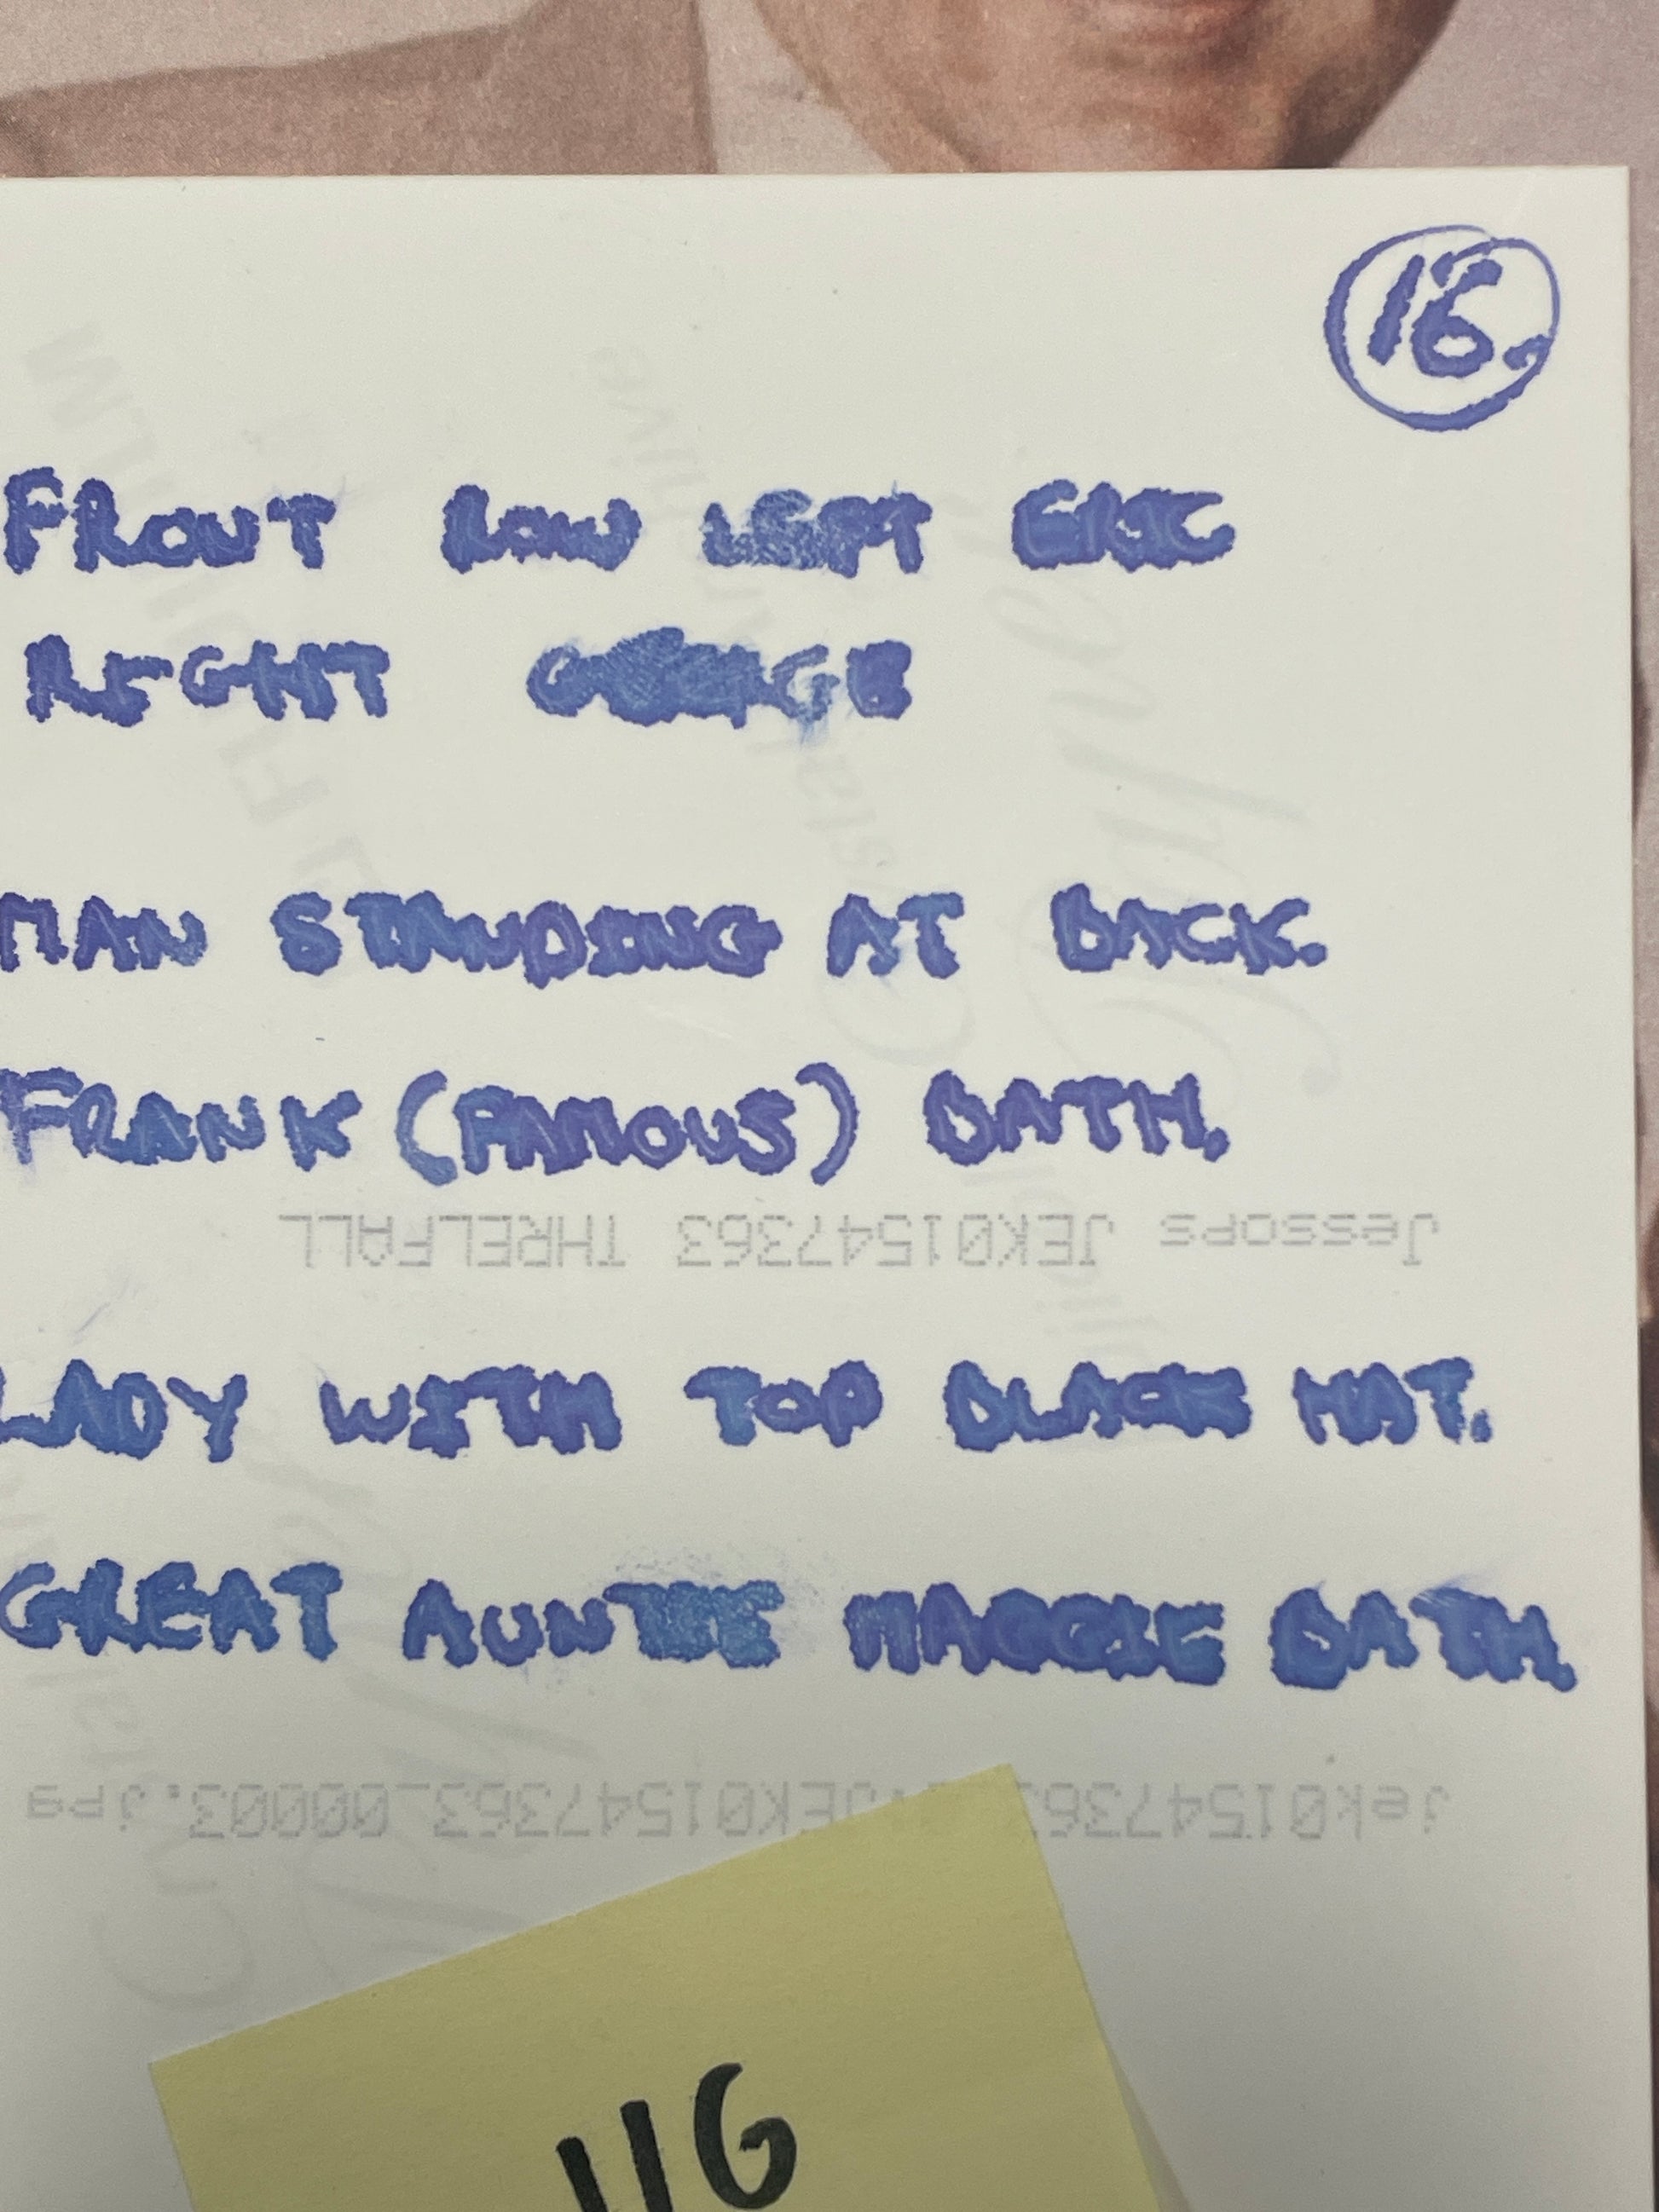 16.
FRONT ROW LEFT ERIC
RIGHT GEORGE
MAN STANDING AT BACK.
FRANK (FAMOUS) BATH.
Jessops JEK01547363 THRELFALL
LADY WITH TOP BLACK HAT.
GREAT AUNTIE MAGGIE BATH.
JEK01547363_00003.jpg
116